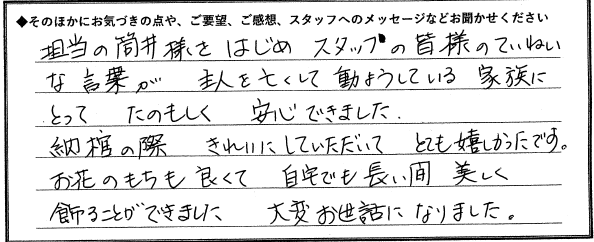 ◆そのほかにお気づきの点や、ご要望、ご感想、スタッフへのメッセージなどお聞かせください
担当の筒井様をはじめ スタッフの皆様のていねい
な言葉が 主人を亡くして動ようしている家族に
とって たのもしく 安心できました.
納棺の際 きれいにしていただいて とても嬉しかったです。
お花のもちも良くて 自宅でも長い間 美しく
飾ることができました 大変お世話になりました。